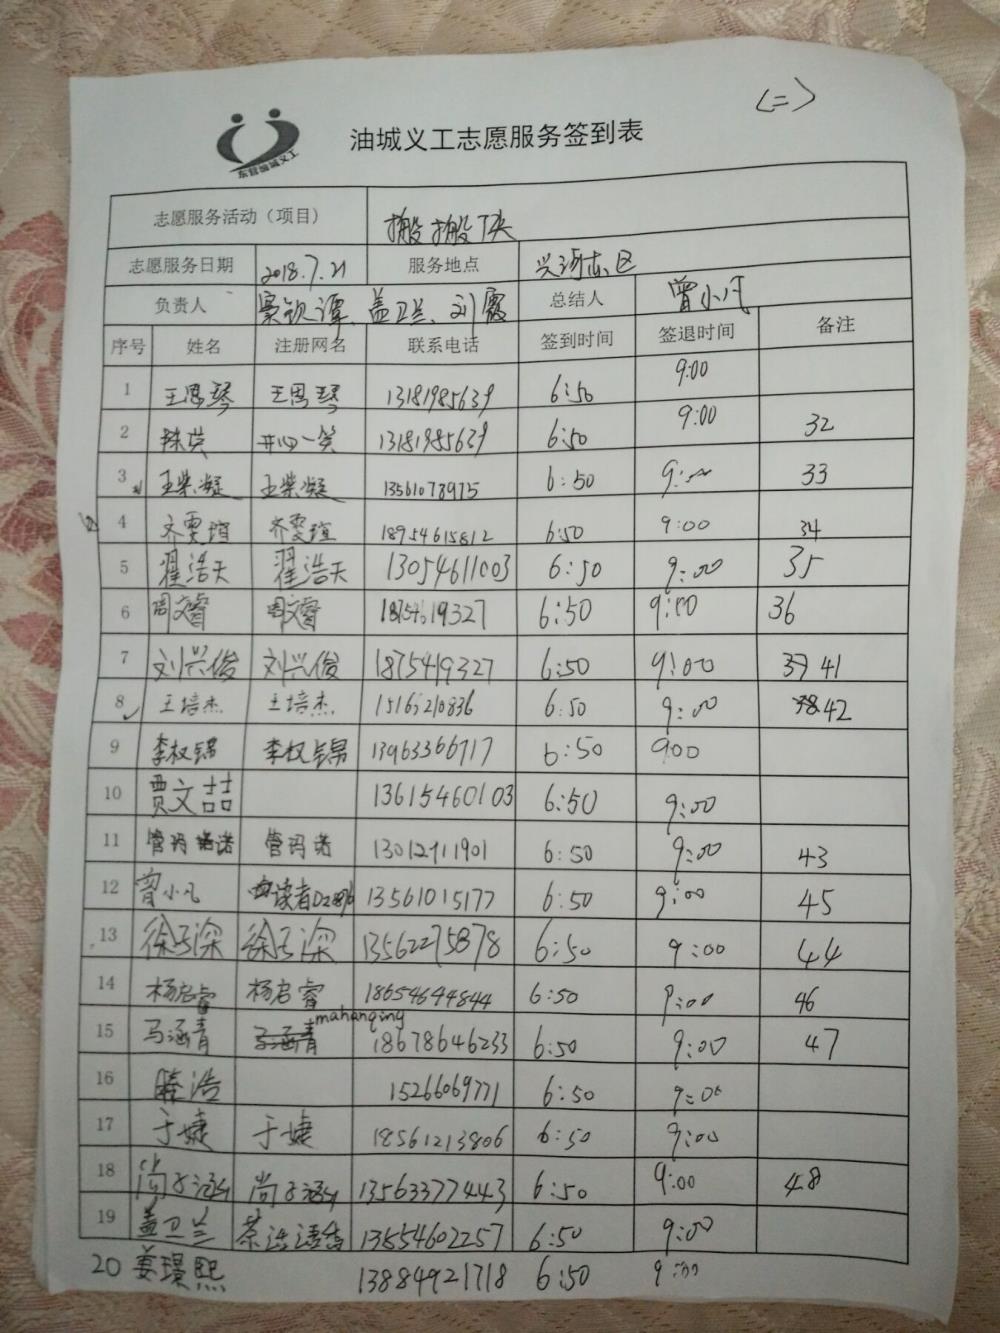 （二）
东营油城义工
油城义工志愿服务签到表
志愿服务活动（项目） 搬搬顶
志愿服务日期 2018.7.21 服务地点 兴河东区
负责人 谭、盖卫兰、刘霞 总结人 曾小凡
序号 姓名 注册网名 联系电话 签到时间 签退时间 备注
1 王思琴 王思琴 13181985639 6:50 9:00
2 陈英 开心一笑 13181985639 6:50 9:00 32
3 王紫凝 王紫凝 13561078975 6:50 9:00 33
4 齐雯瑄 齐雯瑄 18954615812 6:50 9:00 34
5 翟浩天 翟浩天 13054611003 6:50 9:00 35
6 周文睿 周文睿 18754619327 6:50 9:00 36
7 刘兴俊 刘兴俊 1875419327 6:50 9:00 37 41
8 王培杰 王培杰 6:50 9:00 38 42
9 李权锦 李权锦 13963366717 6:50 9:00
10 贾文喆 13615460103 6:50 9:00
11 管玛诺 管玛诺 6:50 9:00 43
12 曾小凡 读者 13561015177 6:50 9:00 45
13 徐子深 徐子深 13562275878 6:50 9:00 44
14 杨启睿 杨启睿 18654644844 6:50 9:00 46
15 马涵青 马涵青 mahanqing 18678646233 6:50 9:00 47
16 滕浩 15266069771 6:50 9:00
17 于婕 于婕 18561213806 6:50 9:00
18 尚子涵 尚子涵 13563377443 6:50 9:00 48
19 盖卫兰 茶 13854602257 6:50 9:00
20 姜璟熙 13884921718 6:50 9:00